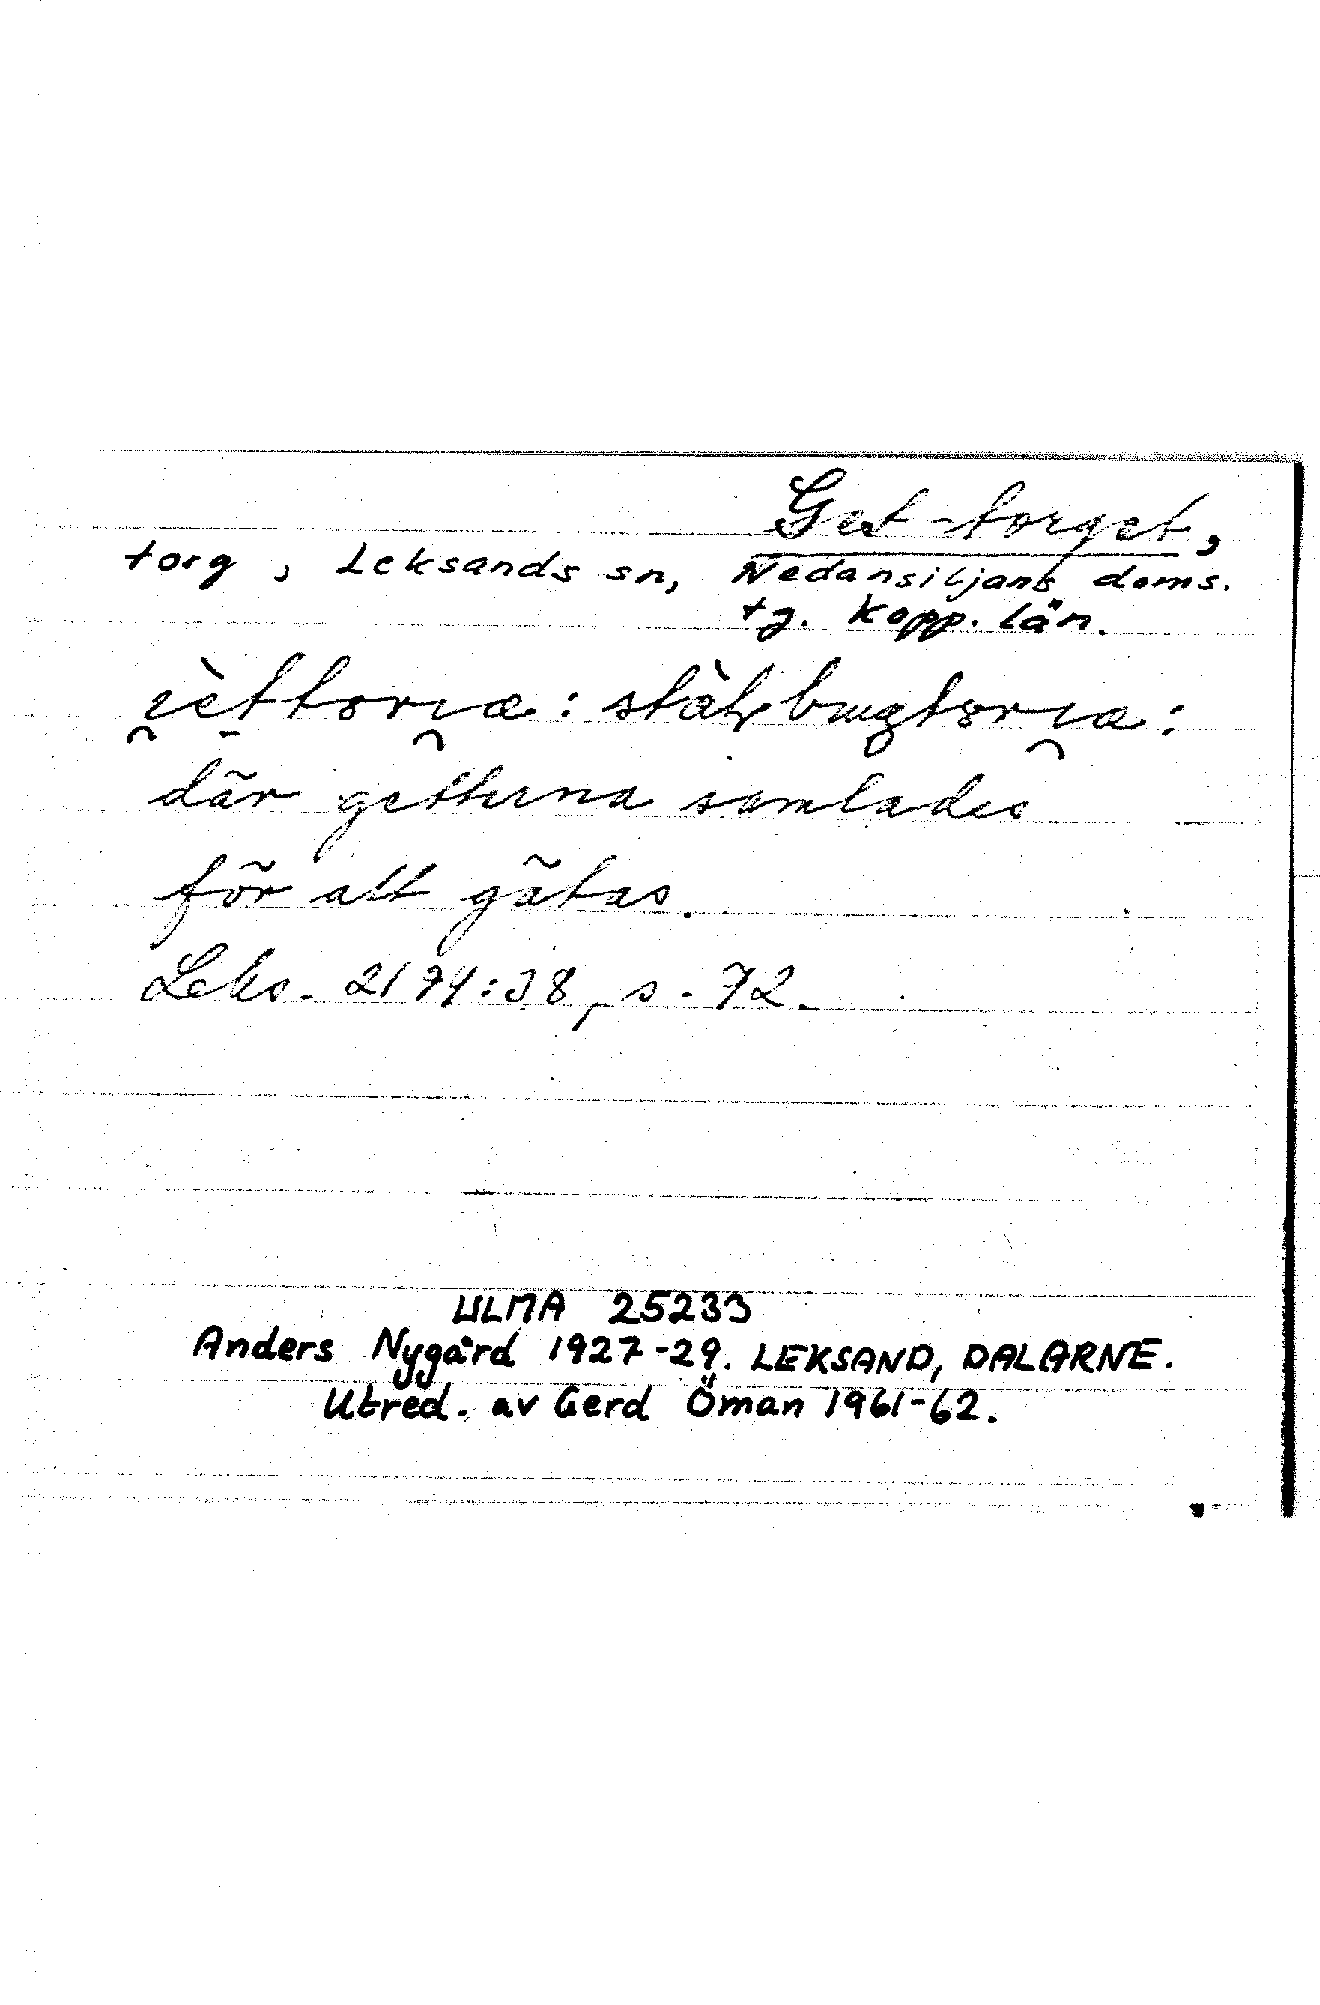 Get-torget,
torg, Leksands sn, Nedansiljans doms.
tg. Kopp. län.
där getterna samlades
för att gätas.
Leks. 2174:38, s. 72.
ULMA 25233
Anders Nygård 1927-29. LEKSAND, DALARNE.
Utred. av Gerd Öman 1961-62.